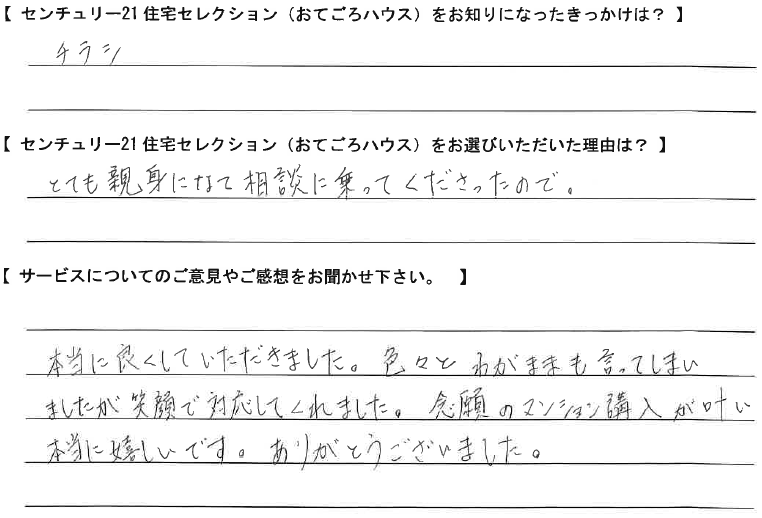 【 センチュリー21 住宅セレクション（おてごろハウス）をお知りになったきっかけは？ 】
チラシ
【 センチュリー21 住宅セレクション（おてごろハウス）をお選びいただいた理由は？ 】
とても親身になって相談に乗ってくださったので。
【 サービスについてのご意見やご感想をお聞かせ下さい。 】
本当に良くしていただきました。色々とわがままも言ってしまい
ましたが笑顔で対応してくれました。念願のマンション購入が叶い
本当に嬉しいです。ありがとうございました。